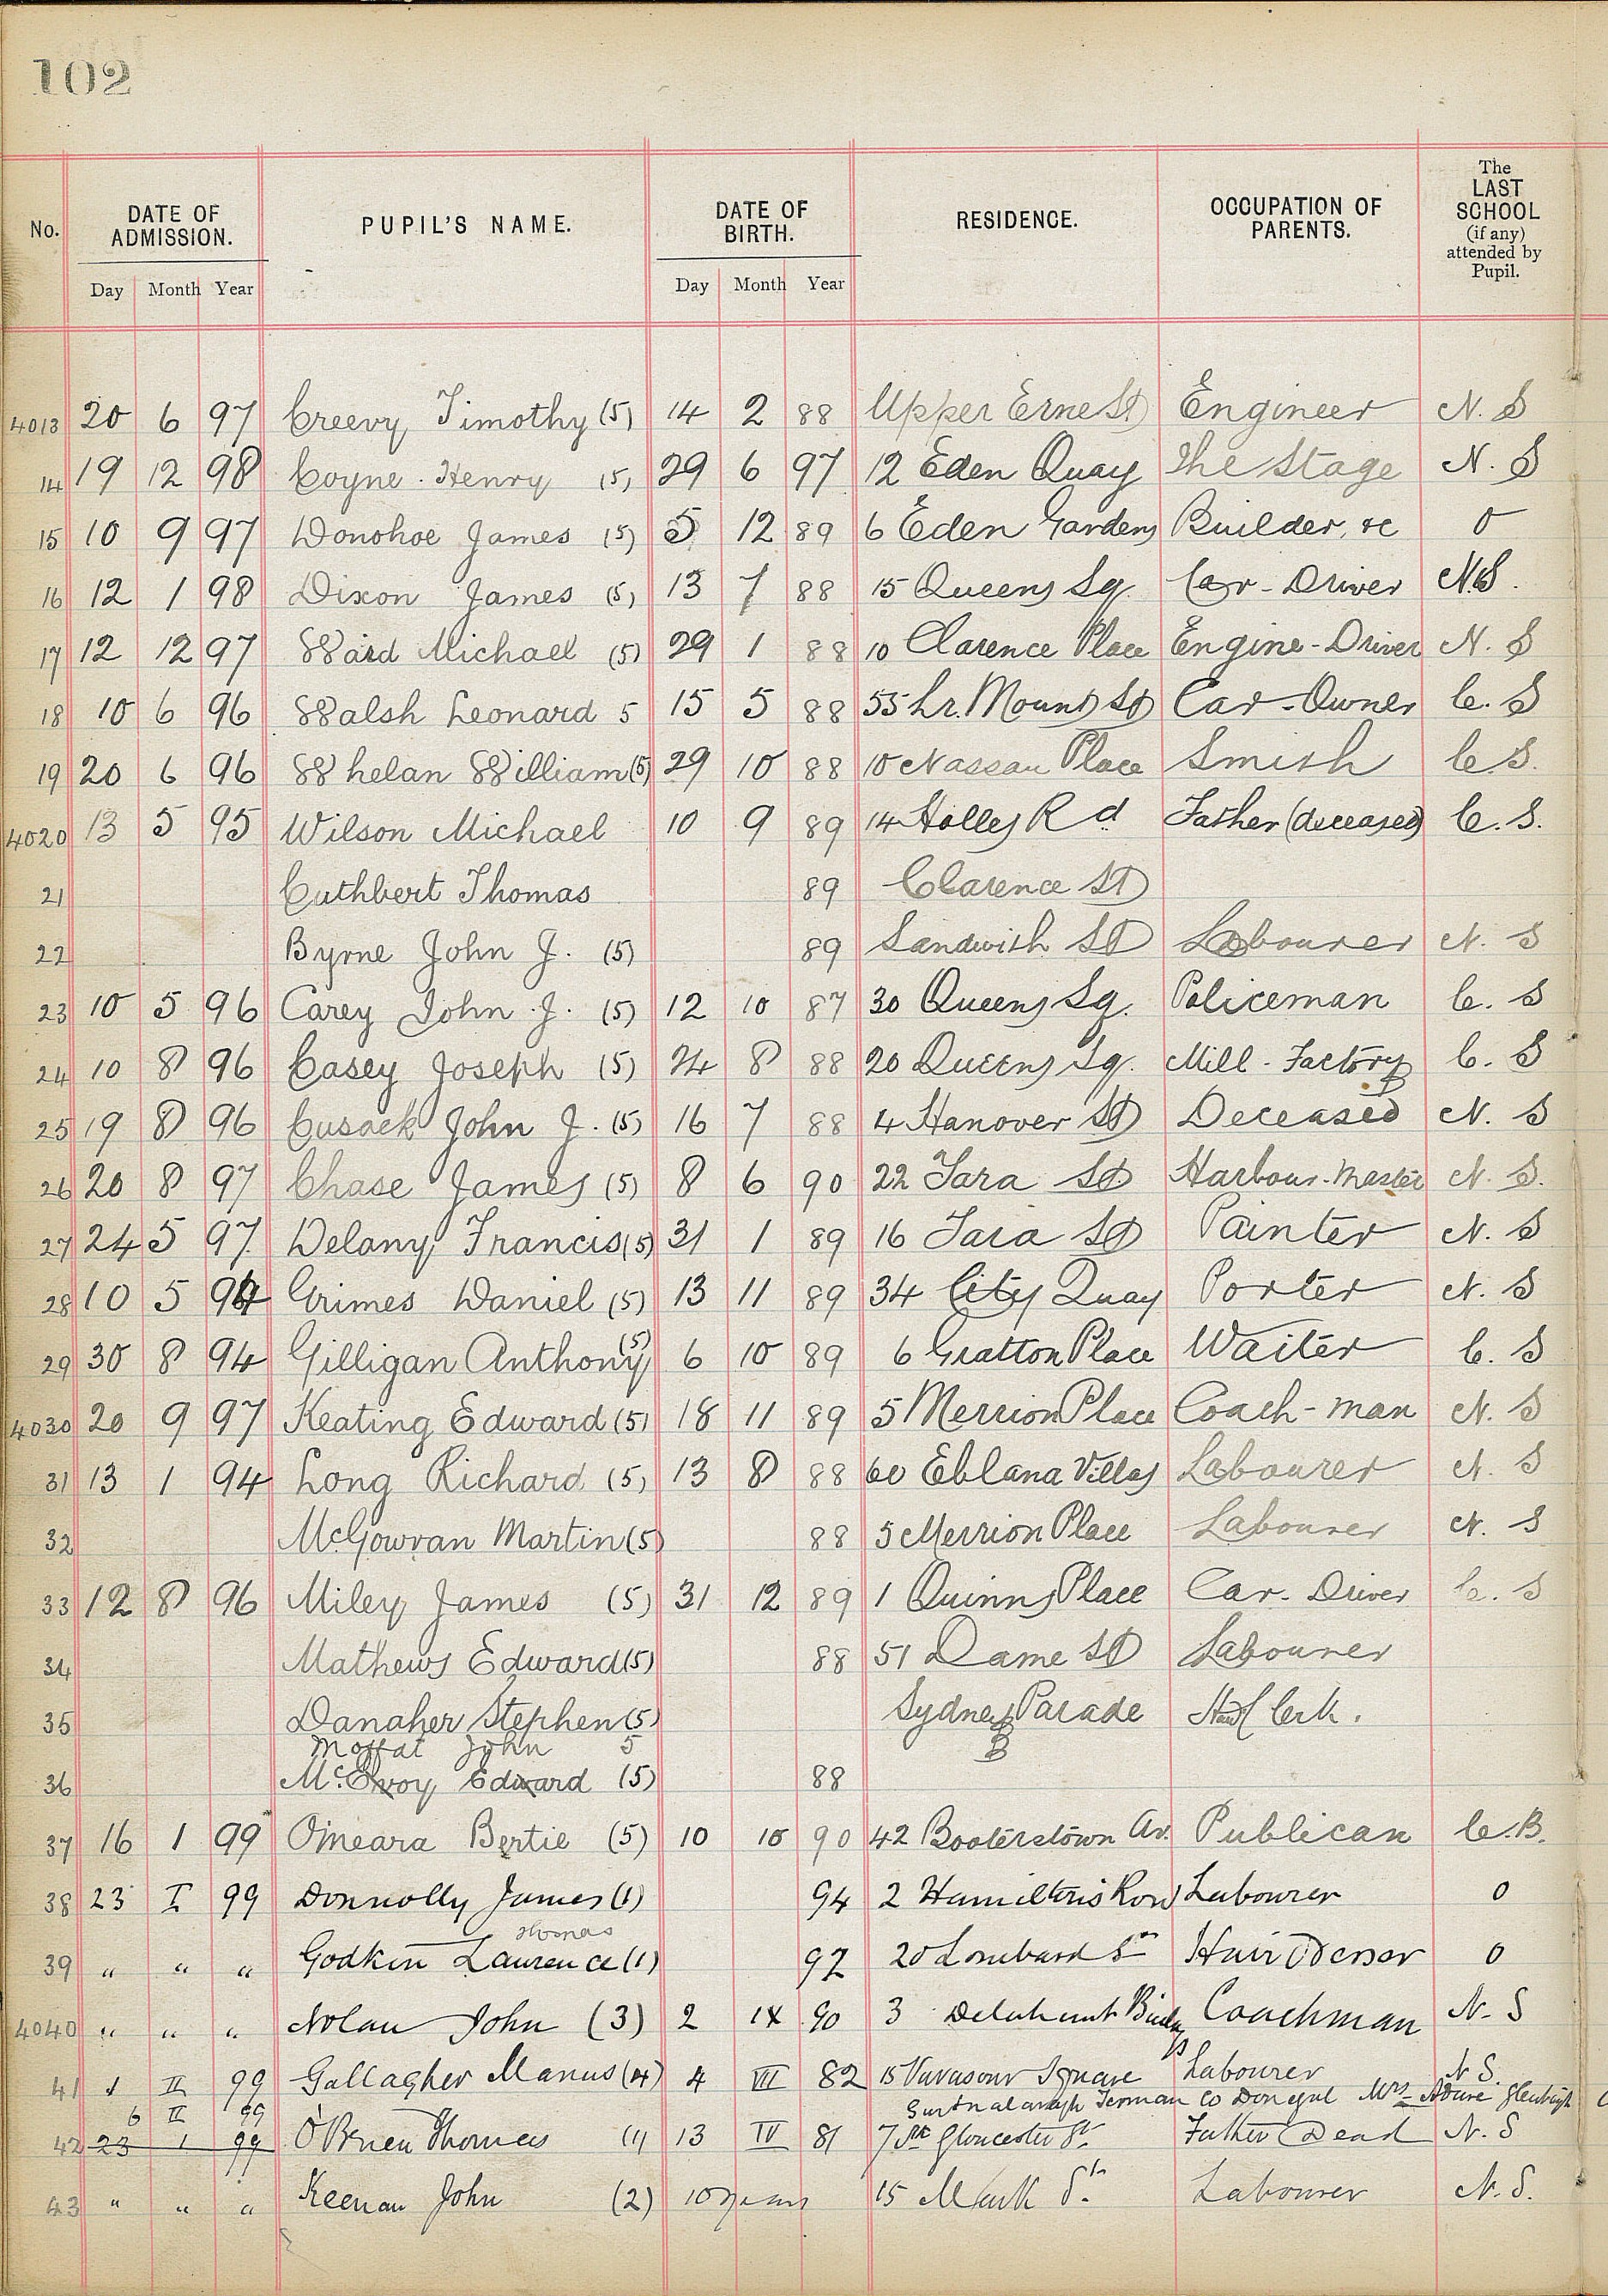 102
No. DATE OF ADMISSION. PUPIL'S NAME. DATE OF BIRTH. RESIDENCE. OCCUPATION OF PARENTS. The LAST SCHOOL (if any) attended by Pupil.
Day Month Year Day Month Year
4013 20 6 97 Creevy Timothy (5) 14 2 88 Upper Erne St Engineer N. S
14 19 12 98 Coyne. Henry (5) 29 6 97 12 Eden Quay The Stage N. S
15 10 9 97 Donohoe James (5) 5 12 89 6 Eden Gardens Builder, &c 0
16 12 1 98 Dixon James (5) 13 7 88 15 Queens Sq. Car-Driver N.S.
17 12 12 97 Ward Michael (5) 29 1 88 10 Clarence Place Engine-Driver N. S
18 10 6 96 Walsh Leonard 5 15 5 88 55 Lr. Mount St Car-Owner C. S
19 20 6 96 Whelan William (5) 29 10 88 10 Nassau Place Smith C.S.
4020 13 5 95 Wilson Michael 10 9 89 14 Holles Rd Father (deceased) C. S.
21 Cuthbert Thomas 89 Clarence St
22 Byrne John J. (5) 89 Sandwith St Labourer N. S
23 10 5 96 Carey John J. (5) 12 10 87 30 Queens Sq. Policeman C. S
24 10 8 96 Casey Joseph (5) 24 8 88 20 Queens Sq. Mill-Factory C. S
25 19 8 96 Cusack John J. (5) 16 7 88 4 Hanover St Deceased N. S
26 20 8 97 Chase James (5) 8 6 90 22 Tara St Harbour-Master N. S.
27 24 5 97 Delany Francis (5) 31 1 89 16 Tara St Painter N. S
28 10 5 94 Grimes Daniel (5) 13 11 89 34 City Quay Porter N. S
29 30 8 94 Gilligan Anthony (5) 6 10 89 6 Gratton Place Waiter C. S
4030 20 9 97 Keating Edward (5) 18 11 89 5 Merrion Place Coach-man N. S
31 13 1 94 Long Richard (5) 13 8 88 60 Eblana Villas Labourer N. S
32 McGowran Martin (5) 88 5 Merrion Place Labourer N. S
33 12 8 96 Miley James (5) 31 12 89 1 Quinns Place Car-Driver C. S
34 Mathews Edward (5) 88 51 Dame St Labourer
35 Danaher Stephen (5) Sydney Parade Clerk.
Moffat John 5
36 McEvoy Edward (5) 88
37 16 1 99 O'Meara Bertie (5) 10 10 90 42 Booterstown Av. Publican C.B.
38 23 I 99 Donnolly James (1) 94 2 Hamilton's Row Labourer 0
Thomas
39 " " " Godkin Laurence (1) 92 20 Lombard St Hair Dresser 0
4040 " " " Nolan John (3) 2 IX 90 3 Delahunt Bindgs Coachman N. S
41 1 II 99 Gallagher Manus (4) 4 VII 82 15 Vavasour Square Labourer N S.
6 II 99 Termon Co Donegal Mrs
42 23 1 99 O'Brien Thomas (1) 13 IV 81 7 Gloucester St Father Dead N. S
43 " " " Keenan John (2) 10 years 15 Mark St. Labourer N. S.